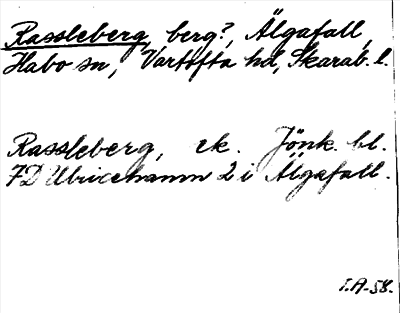 Rassleberg, berg?, Älgafall,
Habo sn, Vartofta hd, Skarab. l.
Rassleberg, ek. Jönk. bl.
7D Ulricehamn 2 i Älgafall.
I.A-58.